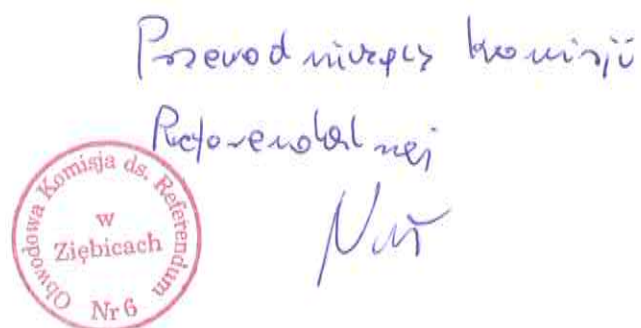 Przewodniczący komisji
Referendalnej
Obwodowa Komisja ds. Referendum
w
Ziębicach
Nr 6